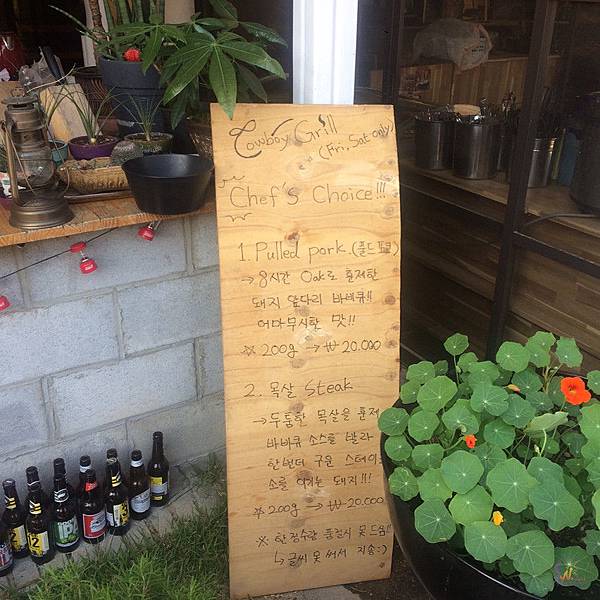 Cowboy Grill
(Fri, Sat only)
Chef's Choice!!!
1. Pulled pork.(풀드포크)
→ 8시간 Oak로 훈제한
돼지 앞다리 바비큐!!
어마무시한 맛!!
※ 200g → ₩ 20.000
2. 목살 Steak
→ 두툼한 목살을 훈제
바비큐 소스를 발라
한번더 구운 스테이크
소를 이기는 돼지!!
※ 200g → ₩ 20.000
※ 한정수량 품절시 못드음!!
↳ 글씨 못 써서 지송:)